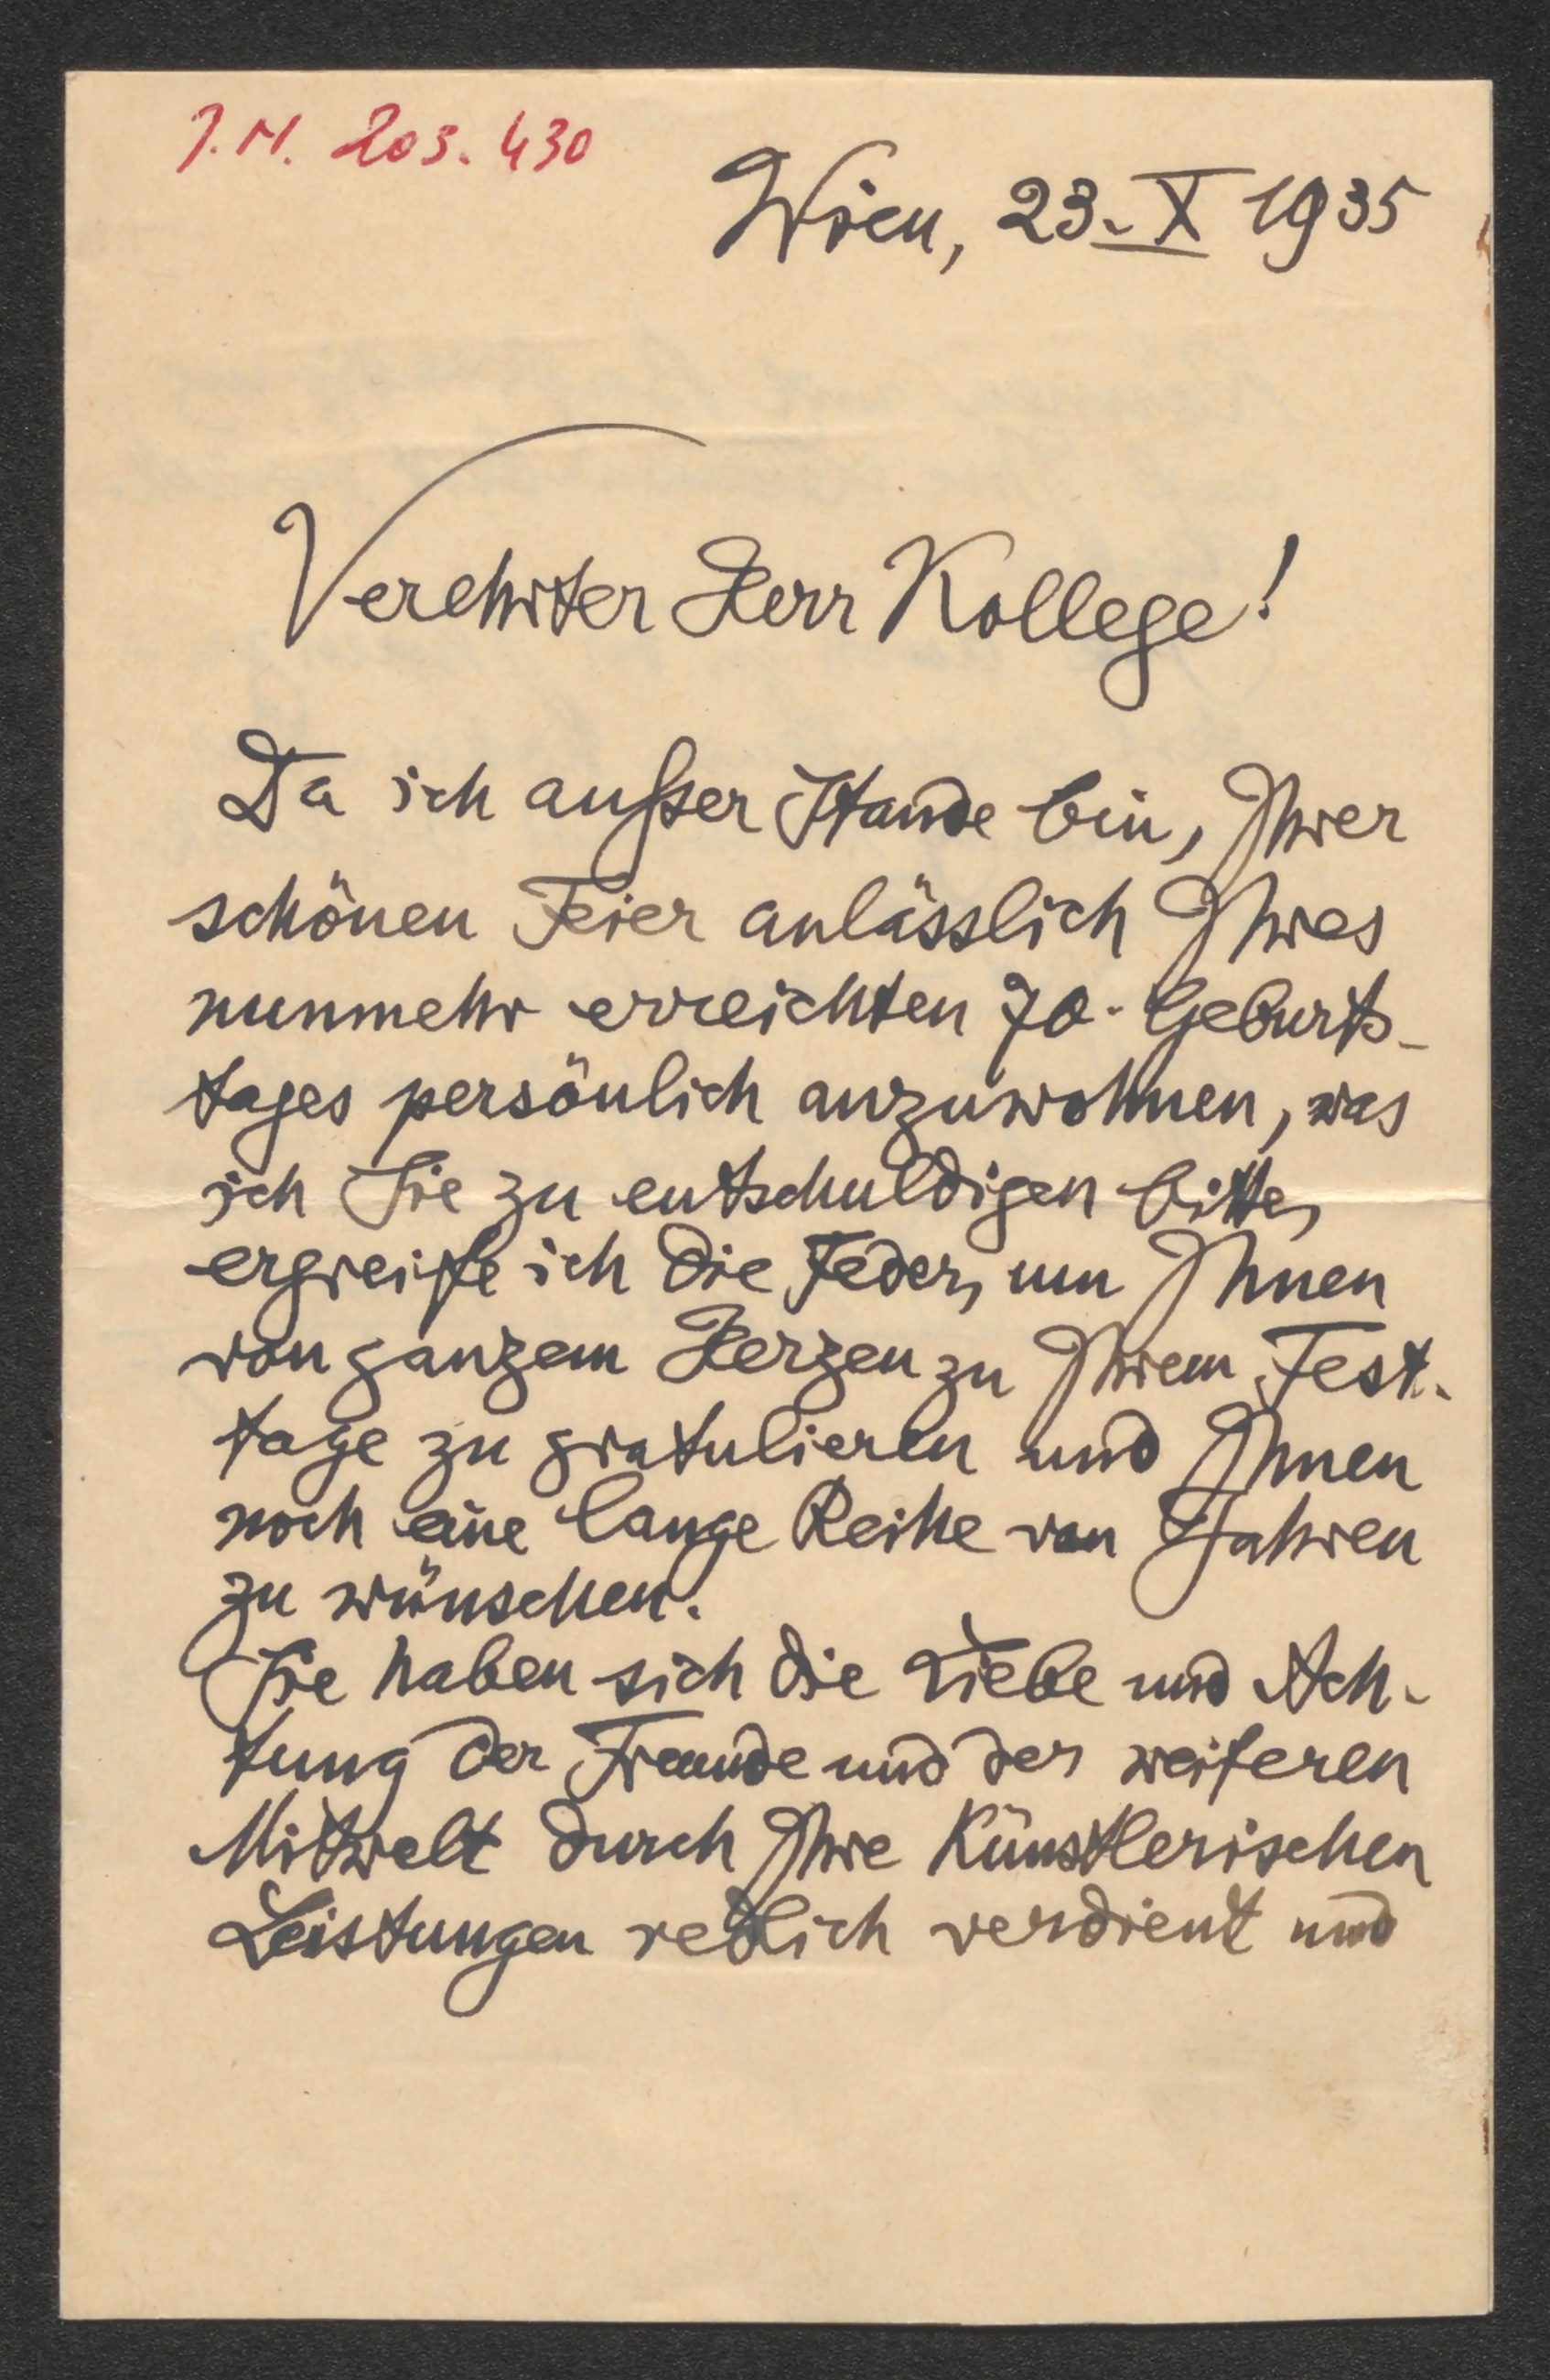 J.N. 203.430
Wien, 23. X 1935
Verehrter Herr Kollege!
Da ich außer Stande bin, Ihrer
schönen Feier anlässlich Ihres
nunmehr erreichten 70. Geburts-
tages persönlich anzuwohnen, was
ich Sie zu entschuldigen bitte,
ergreife ich die Feder, um Ihnen
von ganzem Herzen zu Ihrem Fest-
tage zu gratulieren und Ihnen
noch eine lange Reihe von Jahren
zu wünschen.
Sie haben sich die Liebe und Ach-
tung der Freunde und der weiteren
Mitwelt durch Ihre künstlerischen
Leistungen redlich verdient und